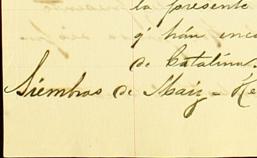 la presente
q' hán enca
de Catalina.
Siembras de Maiz - Re